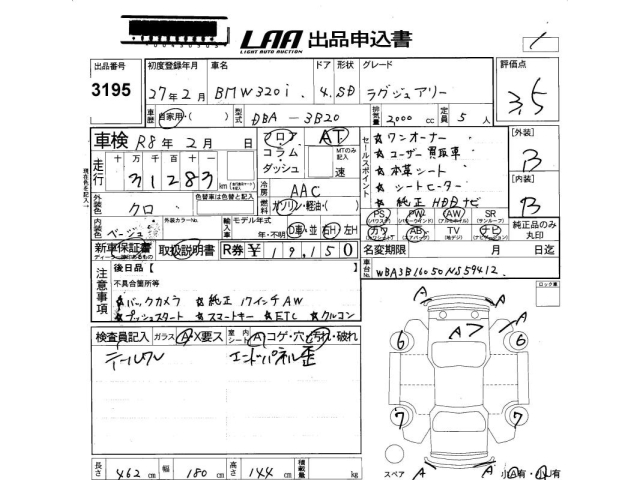 LAA 出品申込書
LIGHT AUTO AUCTION
出品番号 初度登録年月 車名 ドア 形状 グレード 評価点
3195 27年2月 BMW320i 4.SD ラグジュアリー 3.5
車歴 自家用・( ) 型式 DBA-3B20 排気量 2,000cc 定員 5人
車検 R8年2月 日 フロア AT
コラム MTのみ記入
ダッシュ 速
走行 十万 万 千 百 十 一
31283 km
現在色を記入
外装色 クロ 色替車は色替と記入
冷房 AAC
燃料 ガソリン・軽油・( )
内装色 ベージュ 外装カラーNo. 輸入車 モデル年式 年・不明 D車・並 右H 左H
セールスポイント
★ワンオーナー
★ユーザー買取車
★本革シート
★シートヒーター
★純正HDDナビ
PS PW AW SR
(パワーウインド) (サンルーフ)
カワ AB TV ナビ
(エアバック) (地デジ) (ナビゲーション)
[外装] B
[内装] B
純正品のみ丸印
新車保証書 取扱説明書 R券 ¥19,150 名変期限 月 日迄
ディーラー印のあるもの
車台No. WBA3B16050NS59412
注意事項 後日品【 】
不具合箇所等
★バックカメラ ★純正17インチAW
★プッシュスタート ★スマートキー ★ETC ★クルコン
ロック車
検査員記入 ガラス A・X要ス 室内シート A コゲ・穴・汚れ・破れ
テールワレ エンドパネル歪
A A
A A
6 6
7 7
A A
長さ 462cm 幅 180cm 高さ 144cm 積載量 kg
スペア 小A有・小U有